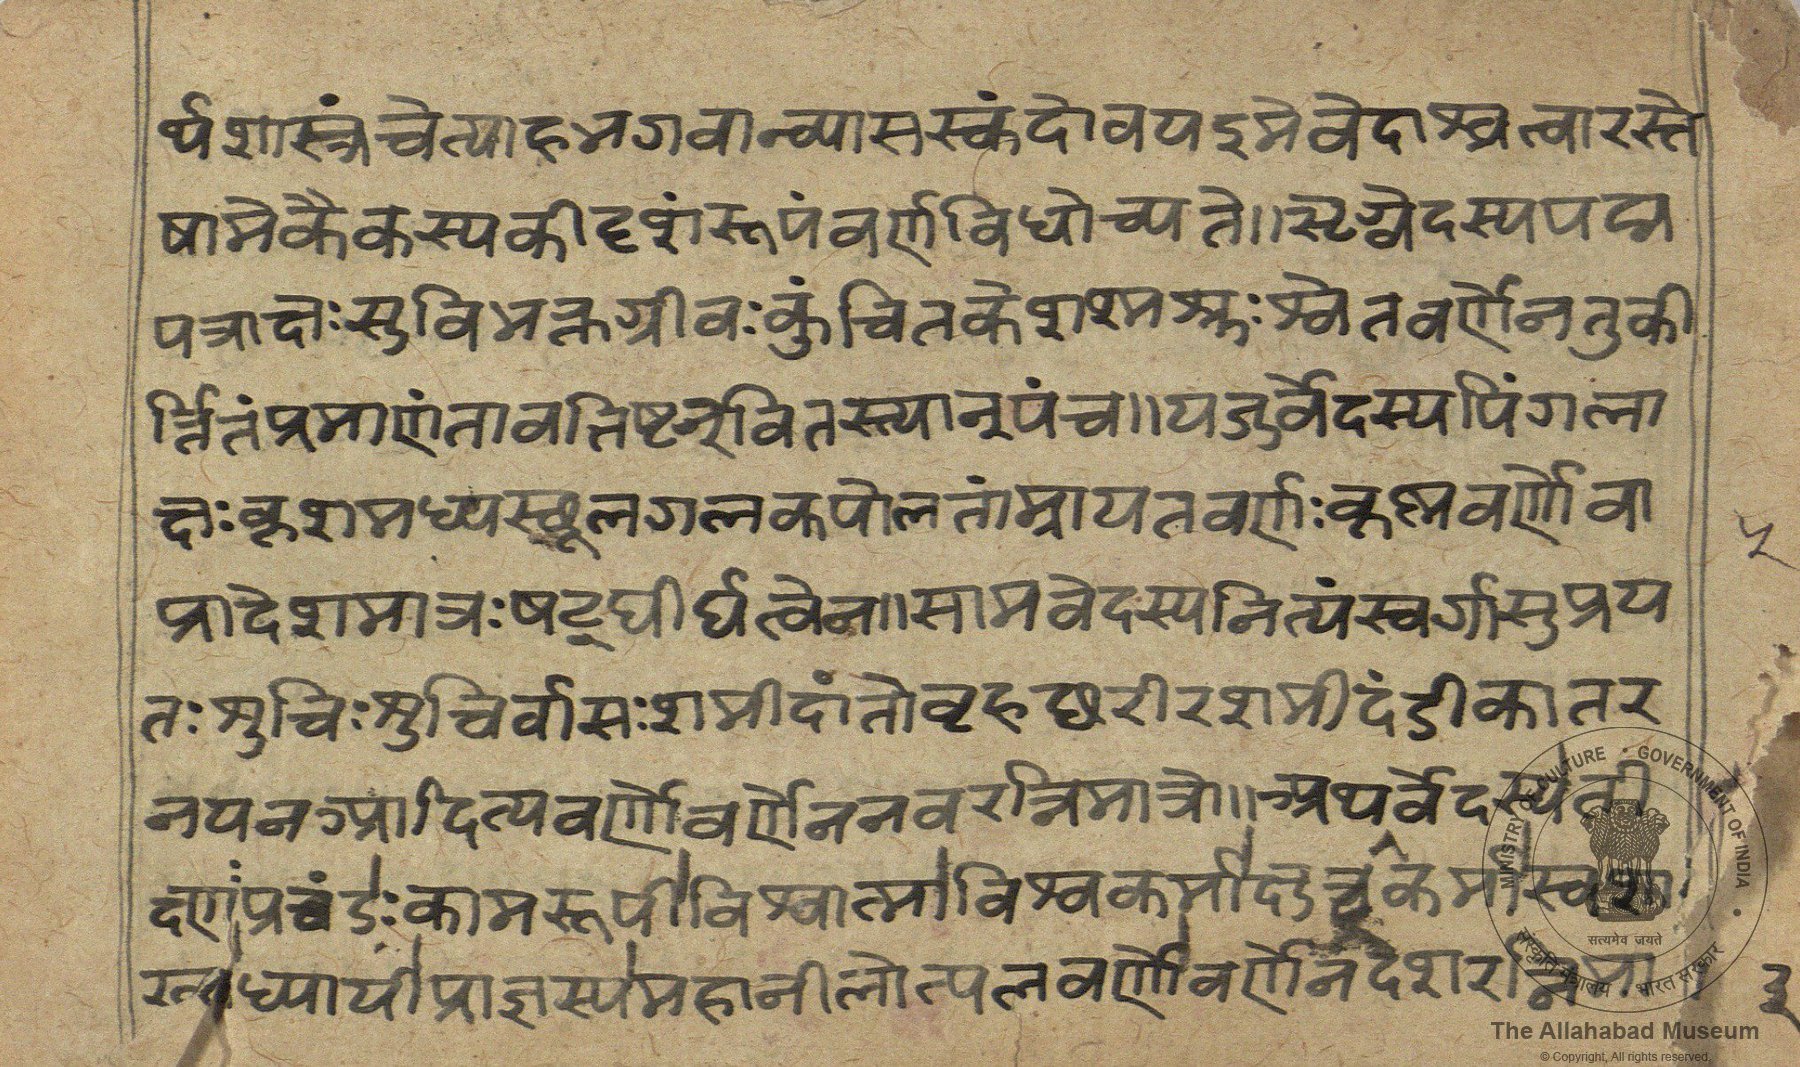 र्थशास्त्रंचेत्याहभगवान्व्यासस्कंदोवयइमेवेदाश्चत्वारस्ते
षामेकैकस्यकीदृशंरूपंवर्णविधोच्यते॥ऋग्वेदस्यपद्म
पत्राक्षःसुविभक्तग्रीवःकुंचितकेशश्मश्रुःश्वेतवर्णेनतुकी
र्त्तितंप्रमाणंतावत्तिष्टन्वितस्त्यान्पंच॥यजुर्वेदस्यपिंगला
क्षःकृशमध्यस्छूलगलकपोलतांम्रायतवर्णःकृष्णवर्णोवा
प्रादेशमात्रःषट्घीर्घत्वेन॥सामवेदस्यनित्यंस्वर्गीसुप्रय
तःशुचिःशुचिर्वासःशमीदांतोवृहच्छरीरशमीदंडीकातर
नयनआदित्यवर्णोवर्णेननवरत्निमात्रो॥अथर्वेदस्यती
क्ष्णंप्रचंडःकामरूपीविश्वात्माविश्वकर्मा
ध्यायीप्राज्ञस्यमहानीलोत्पलवर्णोवर्णेनदशरत्निमा
५
३
MINISTRY OF CULTURE • GOVERNMENT OF INDIA •
सत्यमेव जयते
संस्कृति मंत्रालय • भारत सरकार
The Allahabad Museum
© Copyright, All rights reserved.